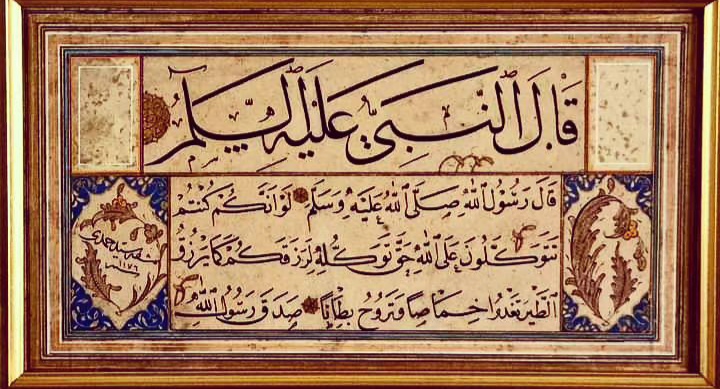 قَالَ النَّبِيُّ عَلَيْهِ السَّلَم
قَالَ رَسُولُ اللهِ صَلَّى اللهُ عَلَيْهِ وَسَلَّمَ لَوْ اَنَّكُمْ كُنْتُمْ
تَتَوَكَّلُونَ عَلَى اللهِ حَقَّ تَوَكُّلِهِ لَرَزَقَكُمْ كَمَا يَرْزُقُ
الطَّيْرَ تَغْدُوا خِمَاصًا وَتَرُوحُ بِطَانًا صَدَقَ رَسُولُ اللهِ
١١٧٦